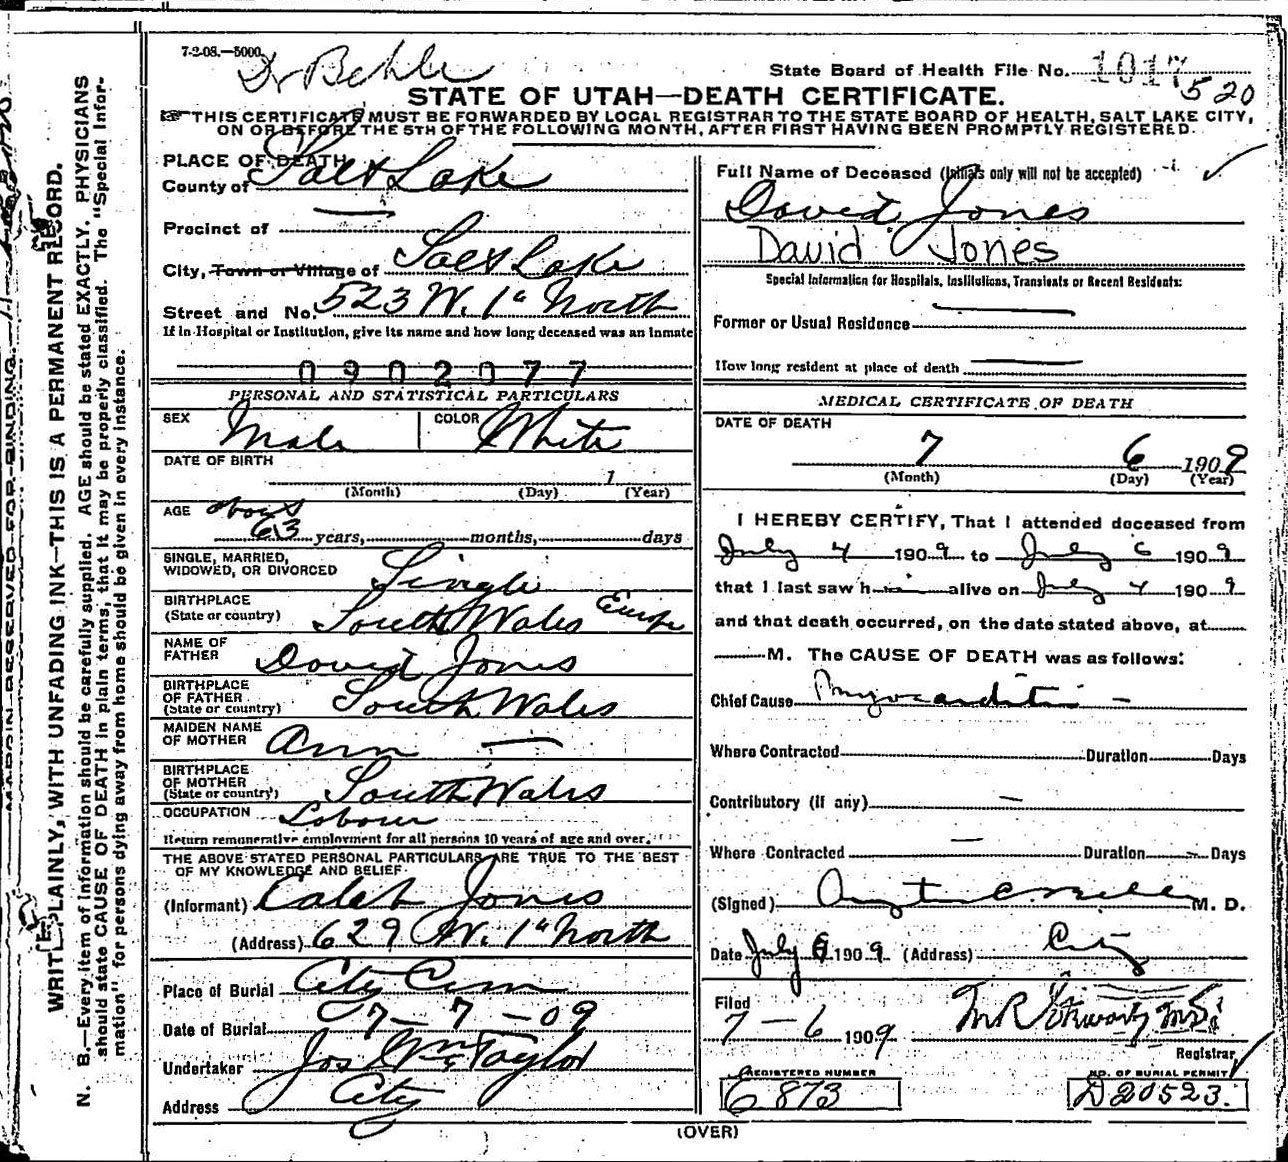 7-2-08.—5000.
Dr Behle
State Board of Health File No. 1017 520
STATE OF UTAH—DEATH CERTIFICATE.
THIS CERTIFICATE MUST BE FORWARDED BY LOCAL REGISTRAR TO THE STATE BOARD OF HEALTH, SALT LAKE CITY,
ON OR BEFORE THE 5TH OF THE FOLLOWING MONTH, AFTER FIRST HAVING BEEN PROMPTLY REGISTERED.
MARGIN RESERVED FOR BINDING
WRITE PLAINLY, WITH UNFADING INK—THIS IS A PERMANENT RECORD.
N. B.—Every item of information should be carefully supplied. AGE should be stated EXACTLY. PHYSICIANS
should state CAUSE OF DEATH in plain terms, that it may be properly classified. The "Special Infor-
mation" for persons dying away from home should be given in every instance.
PLACE OF DEATH
County of Salt Lake
Precinct of —
City, Town or Village of Salt Lake
Street and No. 523 W. 1st North
If in Hospital or Institution, give its name and how long deceased was an inmate
0902077
PERSONAL AND STATISTICAL PARTICULARS
SEX Male COLOR White
DATE OF BIRTH
1
(Month) (Day) (Year)
AGE about
63 years, months, days
SINGLE, MARRIED,
WIDOWED, OR DIVORCED Single
BIRTHPLACE
(State or country) South Wales Europe
NAME OF
FATHER David Jones
BIRTHPLACE
OF FATHER
(State or country) South Wales
MAIDEN NAME
OF MOTHER Ann —
BIRTHPLACE
OF MOTHER
(State or country) South Wales
OCCUPATION Laborer
Return remunerative employment for all persons 10 years of age and over.
THE ABOVE STATED PERSONAL PARTICULARS ARE TRUE TO THE BEST
OF MY KNOWLEDGE AND BELIEF
(Informant) Caleb Jones
(Address) 629 W. 1st North
Place of Burial City Cem
Date of Burial 7-7-09
Undertaker Jos Wm Taylor
Address City
Full Name of Deceased (Initials only will not be accepted)
David Jones
David Jones
Special Information for Hospitals, Institutions, Transients or Recent Residents:
Former or Usual Residence —
How long resident at place of death —
MEDICAL CERTIFICATE OF DEATH
DATE OF DEATH
7 6 1909
(Month) (Day) (Year)
I HEREBY CERTIFY, That I attended deceased from
July 4 1909 to July 6 1909
that I last saw him alive on July 4 1909
and that death occurred, on the date stated above, at
M. The CAUSE OF DEATH was as follows:
Chief Cause Myocarditis —
Where Contracted Duration Days
Contributory (if any) —
Where Contracted — Duration — Days
(Signed) M. D.
Date July 6 1909 (Address) City
Filed
7-6 1909 M R Stewart MD
Registrar
REGISTERED NUMBER NO. OF BURIAL PERMIT
C 873 D20523.
(OVER)